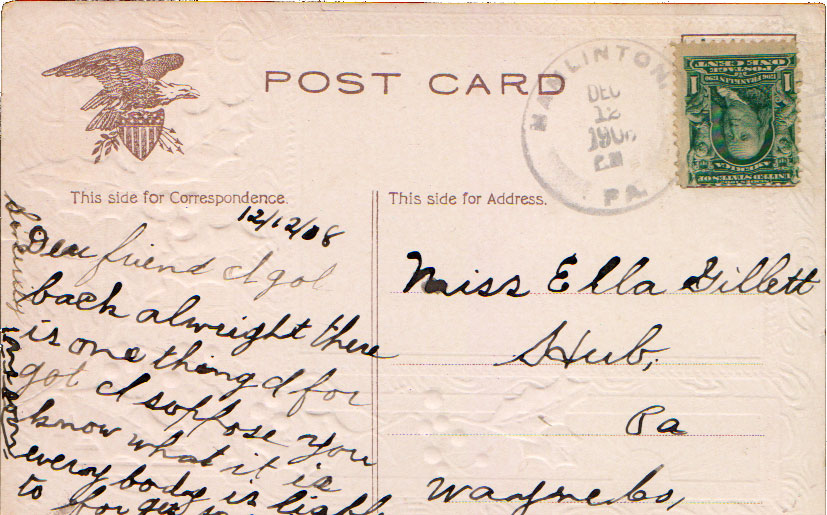 POST CARD
HAMLINTON,
DEC
12
1908
PA.
ONE CENT
POSTAGE
1 1
AMERICA
UNITED STATES OF
This side for Correspondence.
This side for Address.
12/12/08
Dear friend I got
back alwright there
is one thing I for
got I soppose you
know what it is
every body is liabl
to forget
Sincerely
Miss Ella Gillett
Hub,
Pa
Wayne Co,